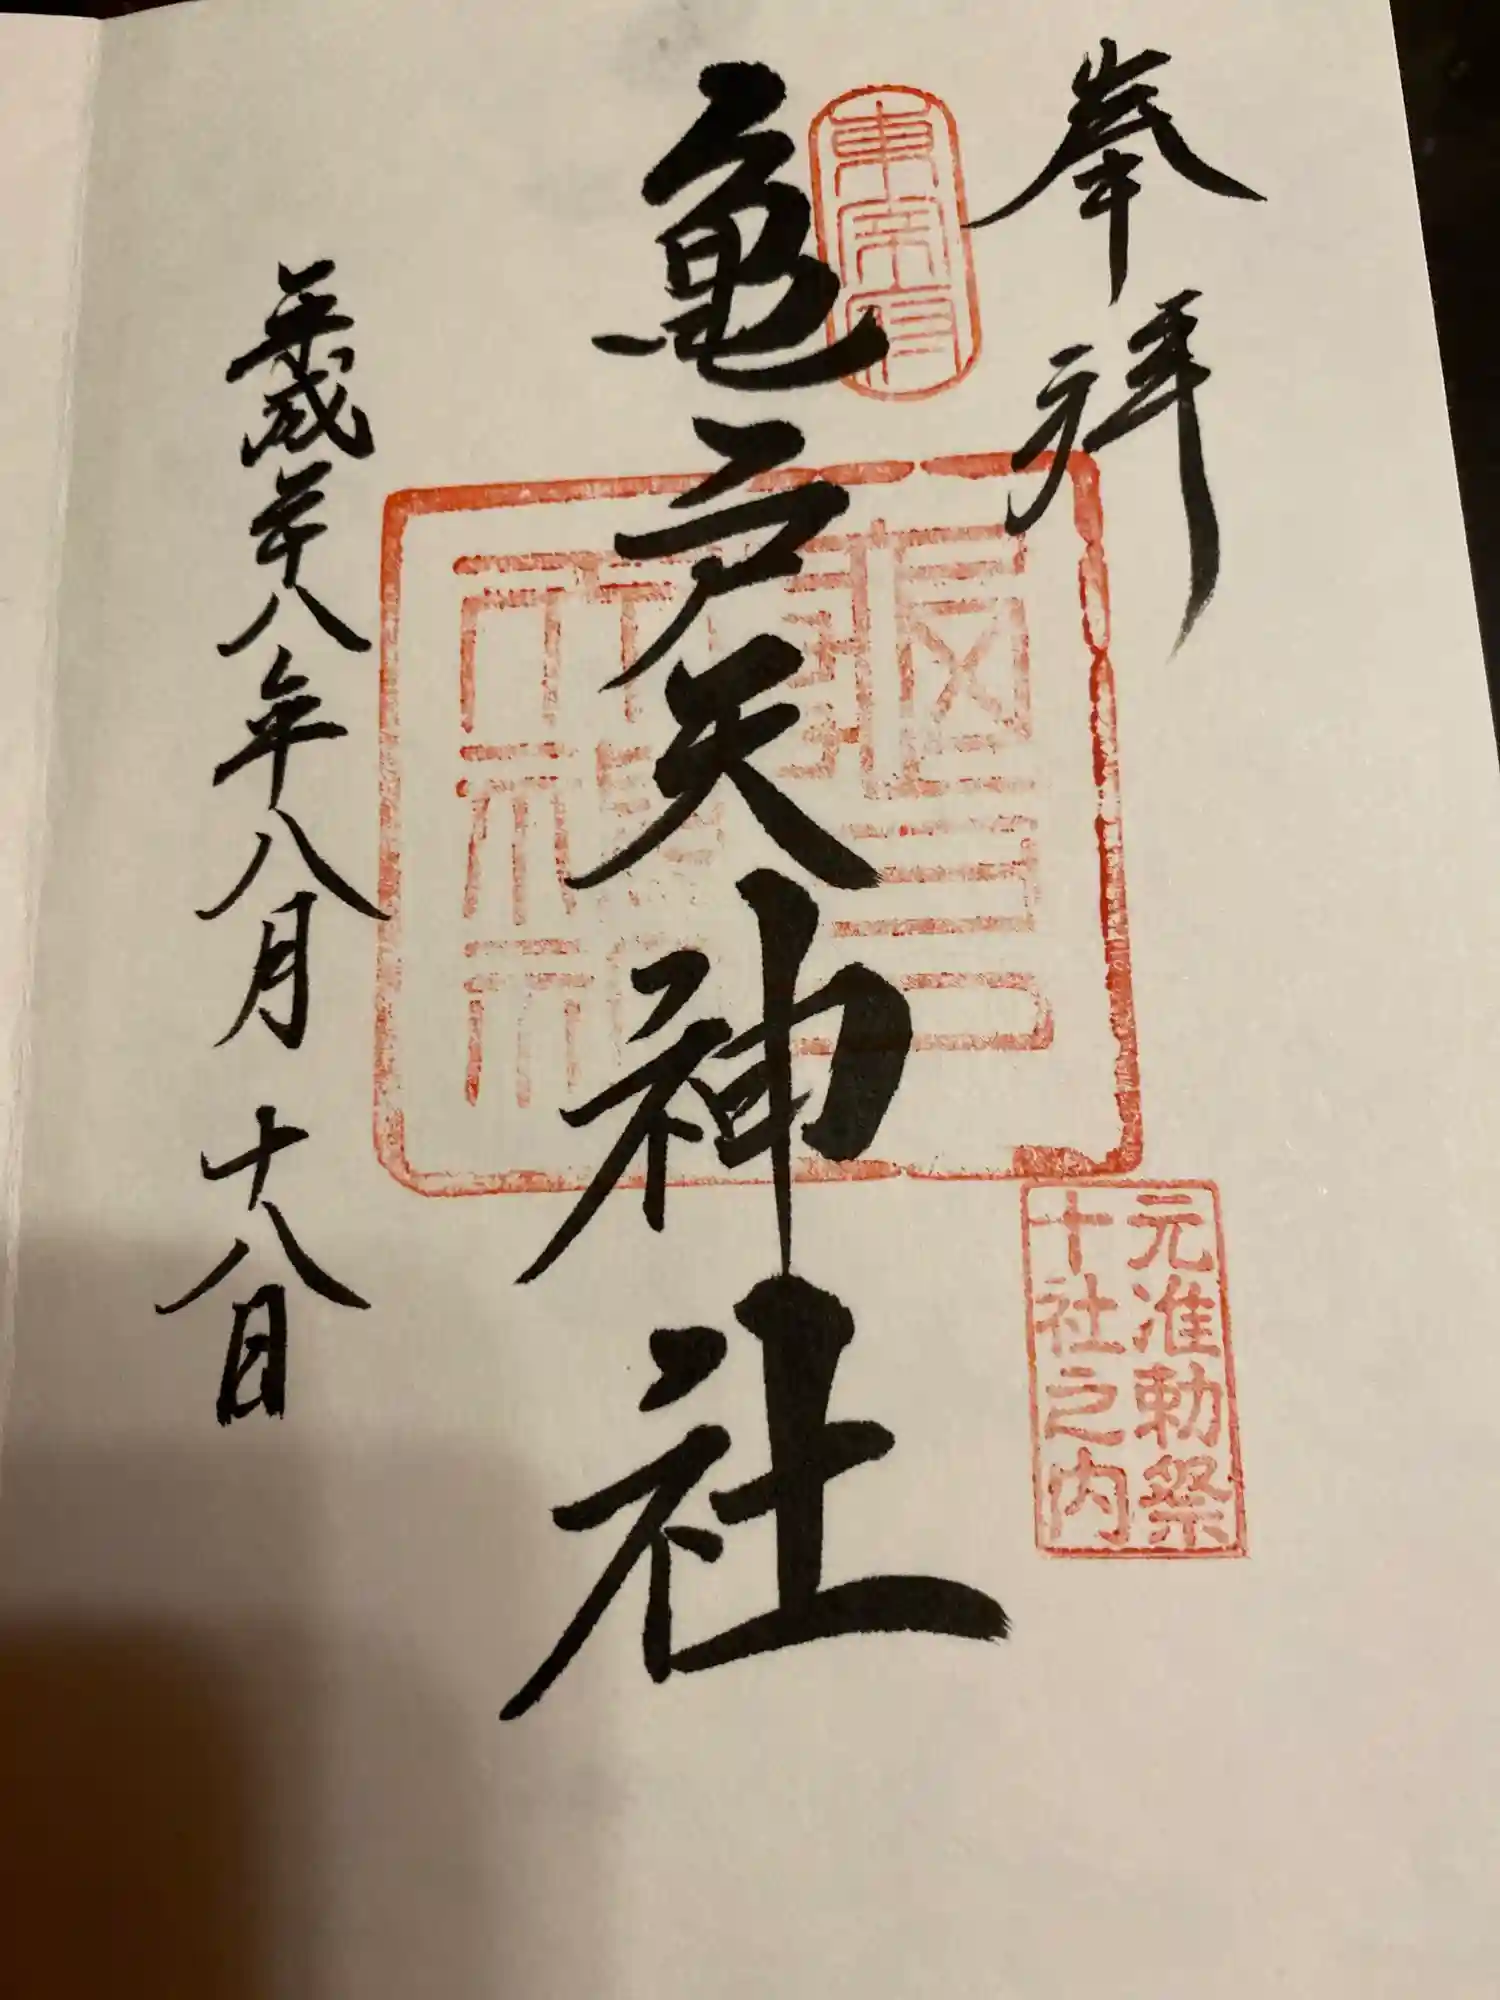 奉拝
東宰府
亀戸天神社
元准勅祭
十社之内
平成二十八年八月十八日